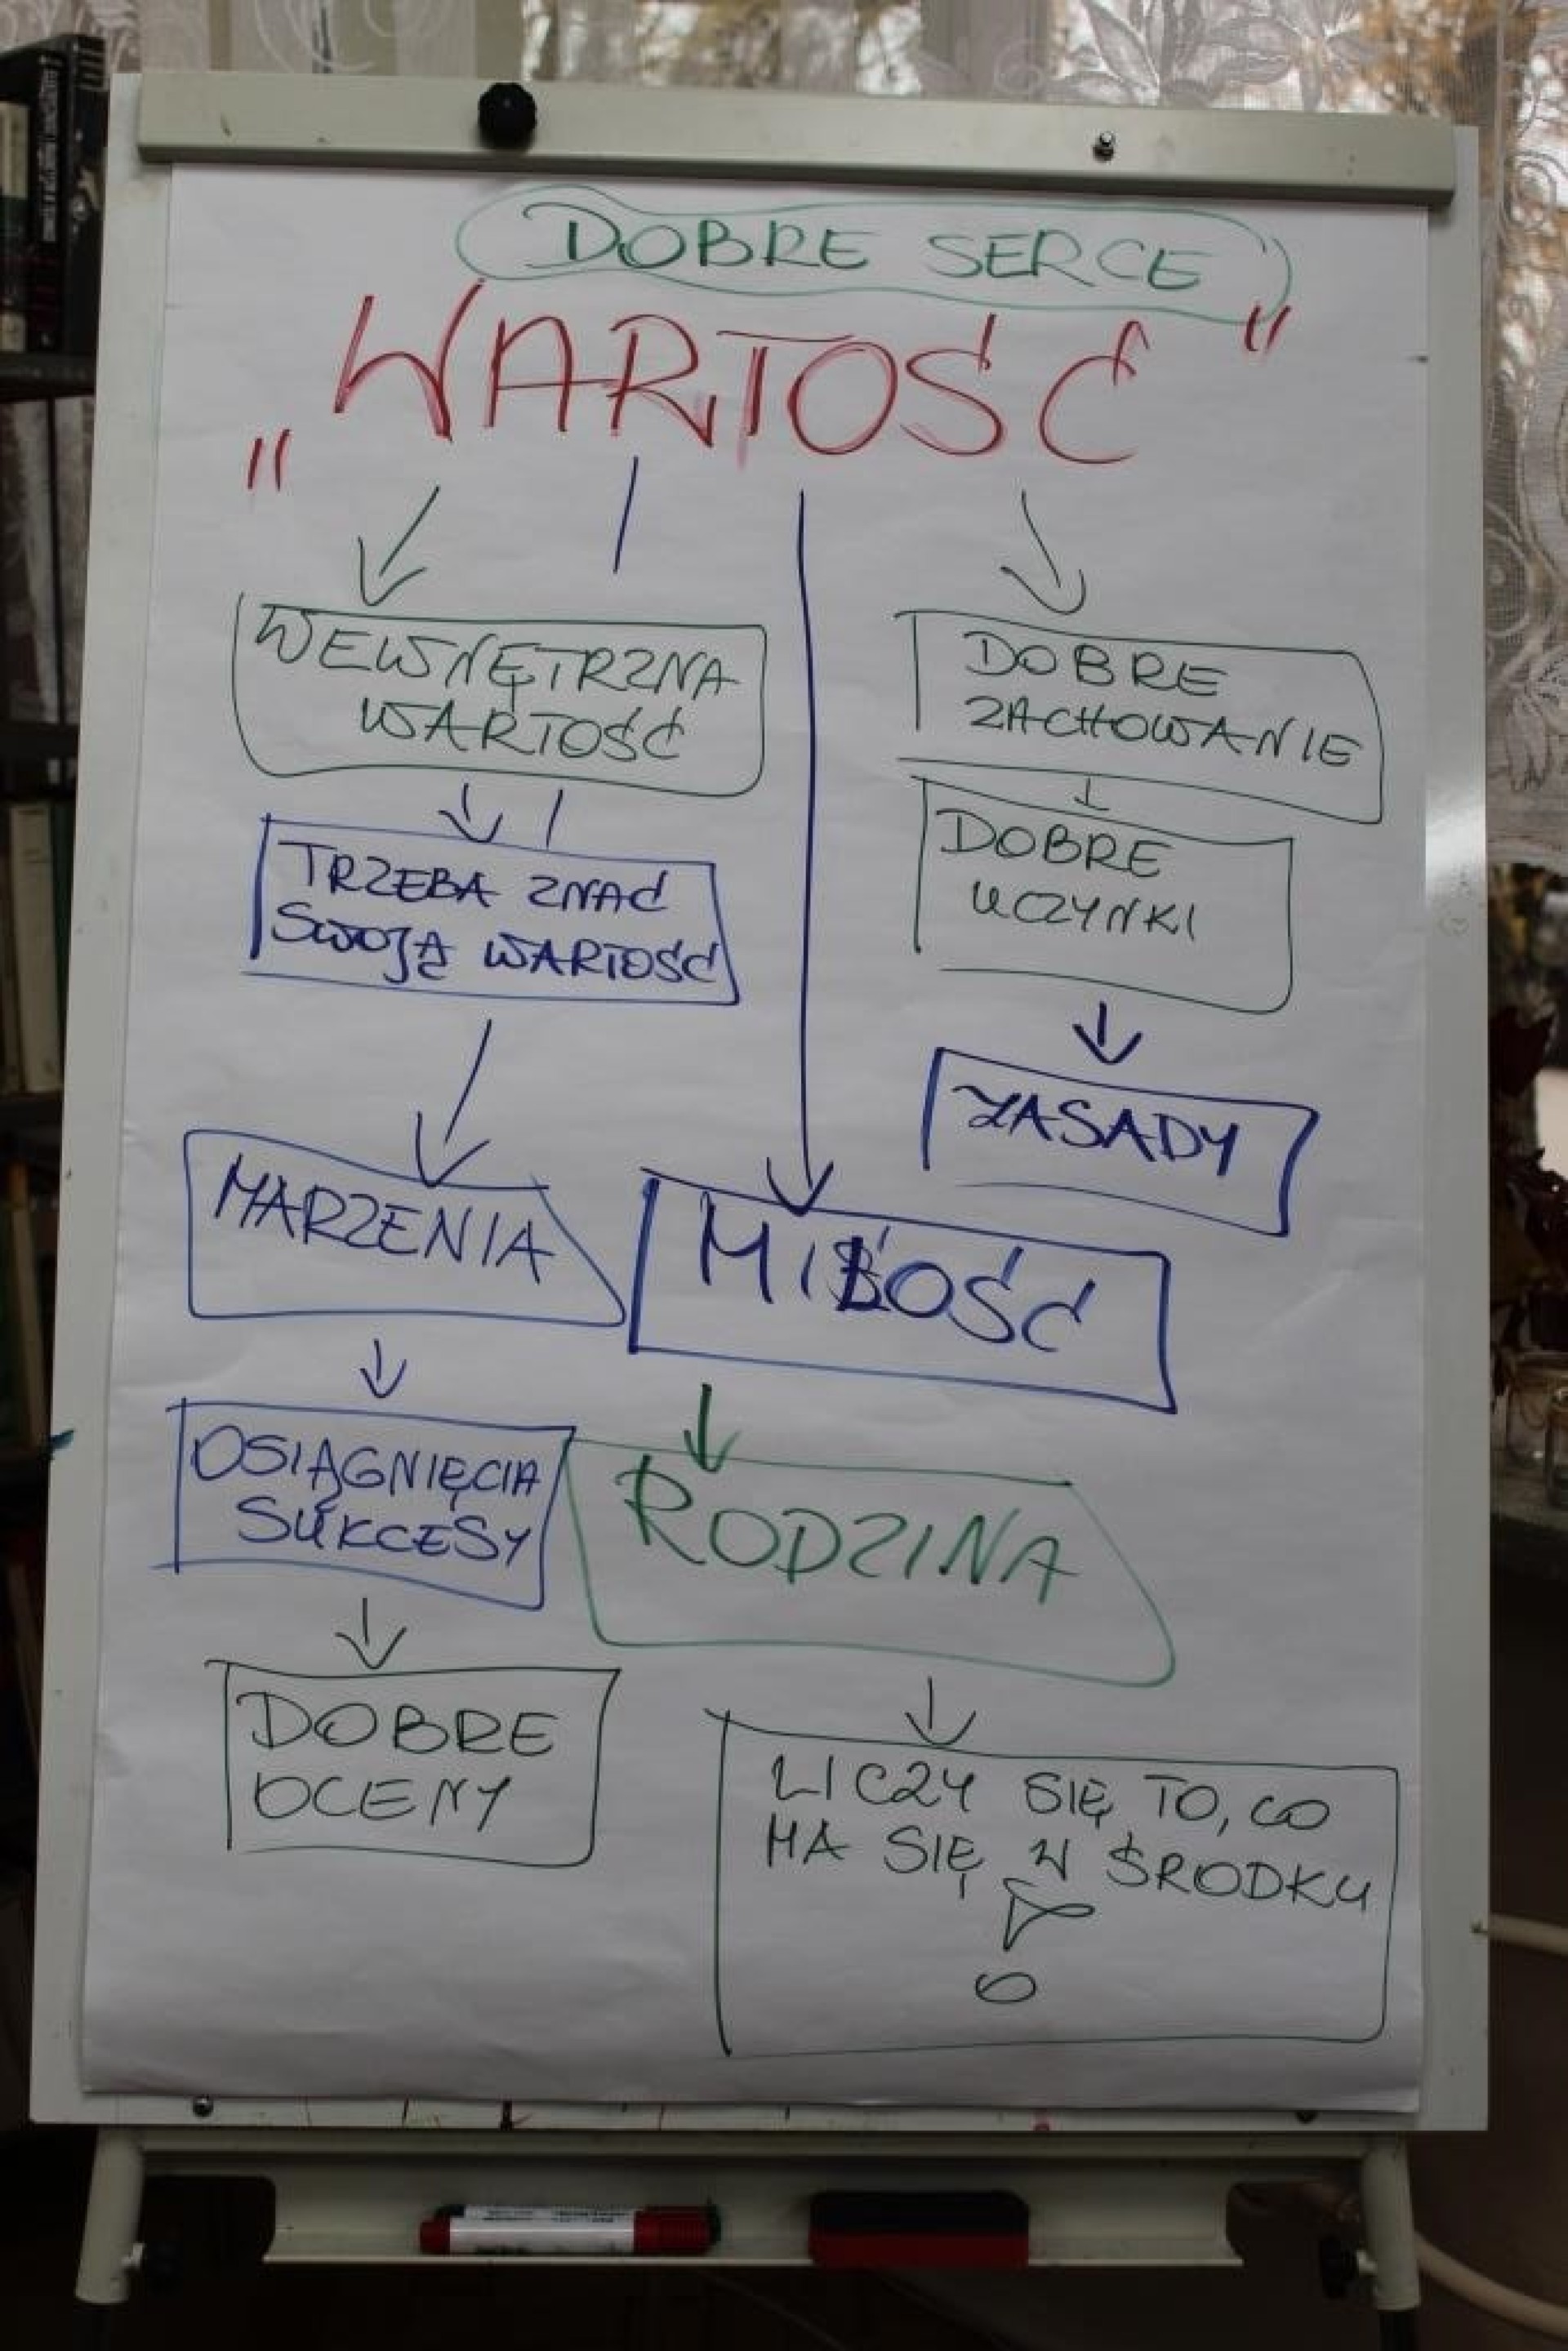 DOBRE SERCE
„WARTOŚĆ"
WEWNĘTRZNA
WARTOŚĆ
TRZEBA ZNAĆ
SWOJĄ WARTOŚĆ
MARZENIA
OSIĄGNIĘCIA
SUKCESY
DOBRE
OCENY
MIŁOŚĆ
RODZINA
LICZY SIĘ TO, CO
MA SIĘ W ŚRODKU
DOBRE
ZACHOWANIE
DOBRE
UCZYNKI
ZASADY